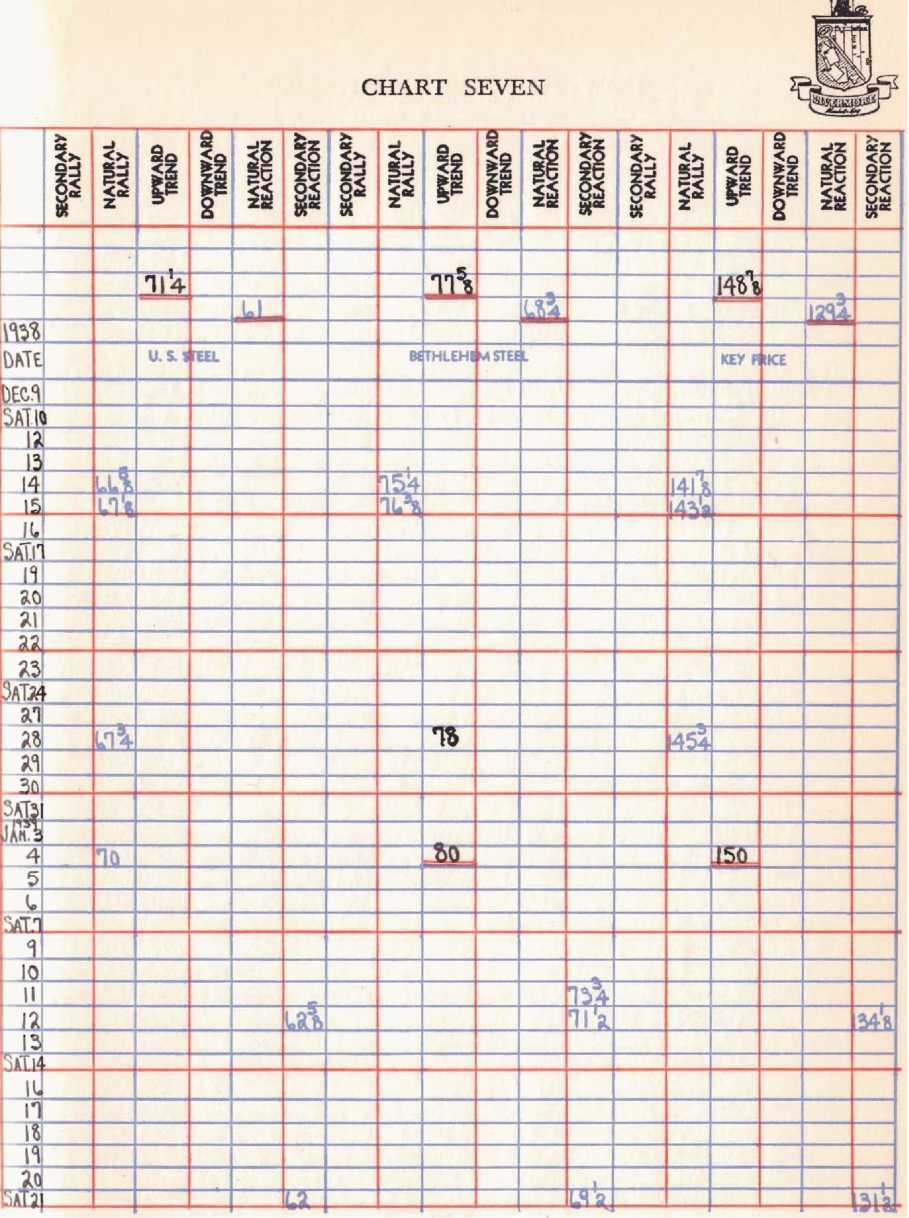 LIVERMORE
Market Key
CHART SEVEN
SECONDARY RALLY NATURAL RALLY UPWARD TREND DOWNWARD TREND NATURAL REACTION SECONDARY REACTION SECONDARY RALLY NATURAL RALLY UPWARD TREND DOWNWARD TREND NATURAL REACTION SECONDARY REACTION SECONDARY RALLY NATURAL RALLY UPWARD TREND DOWNWARD TREND NATURAL REACTION SECONDARY REACTION
71 1/4 77 5/8 148 7/8
61 68 3/4 129 3/4
1938
DATE U. S. STEEL BETHLEHEM STEEL KEY PRICE
DEC.9
SAT.10
12
13
14 66 5/8 75 1/4 141 7/8
15 67 1/8 76 3/8 143 1/2
16
SAT.17
19
20
21
22
23
SAT.24
27
28 67 3/4 78 145 3/4
29
30
SAT31
1939
JAN. 3
4 70 80 150
5
6
SAT.7
9
10
11 73 3/4
12 62 5/8 71 1/2 134 1/8
13
SAT.14
16
17
18
19
20
SAT21 62 69 1/2 131 1/2